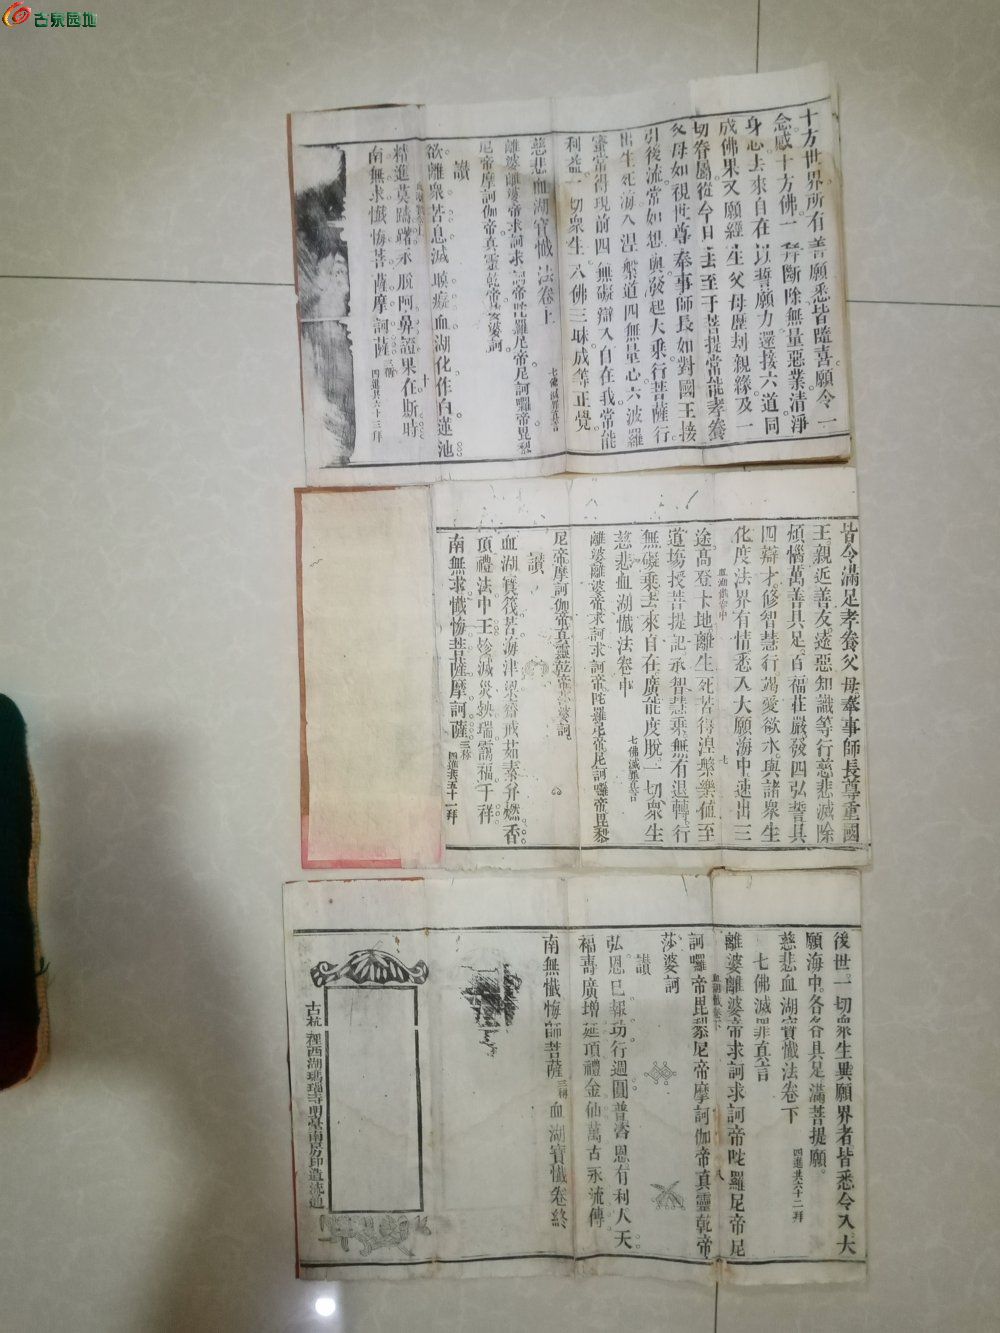 古泉园地
十方世界所有善願悉皆隨喜願令一
念感十方佛一 斷除無量惡業清淨
身心去來自在以誓願力還接六道同
成佛果又願經生父母歷刦親緣及一
切眷屬從今日去至于菩提常能孝養
父母如視世尊奉事師長如對國王接
引後流常如想與發起大乘行菩薩行
出生死海入涅槃道四無量心六波羅
蜜常得現前四無礙辯入自在我常能
利益一切衆生入佛三昧成等正覺
慈悲血湖寶懺法卷上
七佛滅罪真言
離婆離婆帝求訶求訶帝陀羅尼帝尼訶囉帝毘犁
尼帝摩訶伽帝真靈乾帝莎婆訶
讚
欲離衆苦息滅嗔癡血湖化作白蓮池
精進莫躊躇永脫阿鼻證果在斯時
南無求懺悔菩薩摩訶薩三稱
四進共六十三拜
皆令滿足孝養父母奉事師長尊重國
王親近善友遠惡知識等行慈悲滅除
煩惱萬善具足百福莊嚴發四弘誓具
四辯才修智慧行竭愛欲水與諸衆生
化度法界有情悉入大願海中速出三
血湖懺卷中
七
途高登十地離生死苦得涅槃樂值至
道場授菩提記承智慧乘無有退轉行
無礙乘去來自在廣能度脫一切衆生
慈悲血湖懺法卷中
七佛滅罪真言
離婆離婆帝求訶求訶帝陀羅尼帝尼訶囉帝毘黎
尼帝摩訶伽帝真靈乾帝莎婆訶
讚
血湖寶筏苦海津梁齋戒茹素并燃香
頂禮法中王殄滅災殃瑞靄福千祥
南無求懺悔菩薩摩訶薩三称
四進共五十一拜
後世一切衆生與願界者皆悉令入大
願海中各各具足滿菩提願
四進共六十二拜
慈悲血湖寶懺法卷下
七佛滅罪真言
離婆離婆帝求訶求訶帝陀羅尼帝尼
血湖懺卷下
八
訶囉帝毘黎尼帝摩訶伽帝真靈乾帝
莎婆訶
讚
弘恩已報功行週圓普沾恩有利人天
福壽廣增延頂禮金仙萬古永流傳
南無懺悔師菩薩三稱 血湖寶懺卷終
古杭裡西湖瑪瑙寺明臺南房印造流通